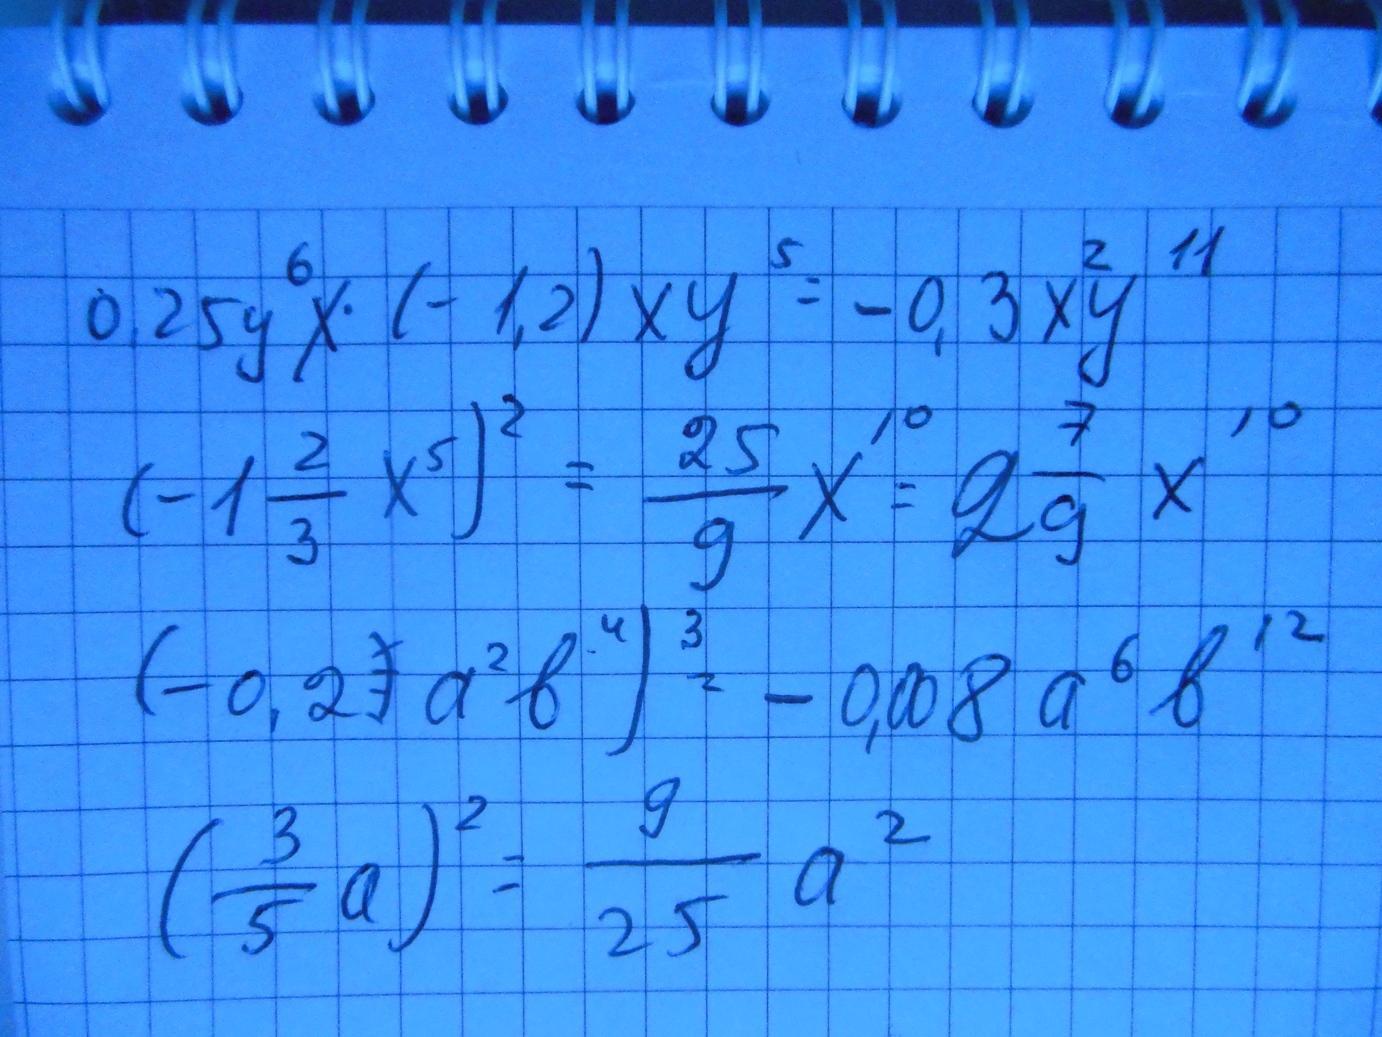 0,25y⁶x · (-1,2)xy⁵ = -0,3x²y¹¹
(-1 2/3 x⁵)² = 25/9 x¹⁰ = 2 7/9 x¹⁰
(-0,2 a²b⁴)³ = -0,008 a⁶b¹²
(3/5 a)² = 9/25 a²